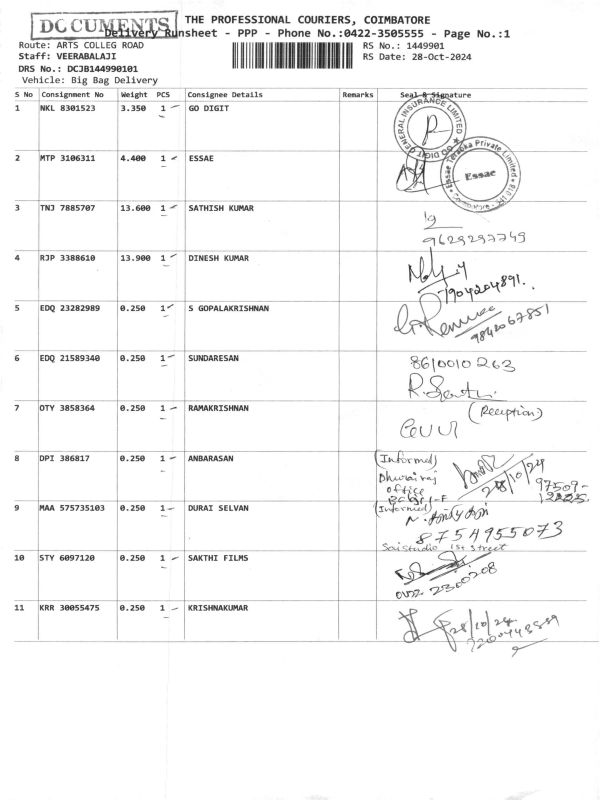 DOCUMENTS
THE PROFESSIONAL COURIERS, COIMBATORE
Delivery Runsheet - PPP - Phone No.:0422-3505555 - Page No.:1
Route: ARTS COLLEG ROAD
RS No.: 1449901
Staff: VEERABALAJI
RS Date: 28-Oct-2024
DRS No.: DCJB144990101
Vehicle: Big Bag Delivery
S No Consignment No Weight PCS Consignee Details Remarks Seal & Signature
1 NKL 8301523 3.350 1 GO DIGIT
GO DIGIT GENERAL INSURANCE LIMITED
2 MTP 3106311 4.400 1 ESSAE
Essae Teraoka Private Limited
Essae
3 TNJ 7885707 13.600 1 SATHISH KUMAR
9629297749
4 RJP 3388610 13.900 1 DINESH KUMAR
7904204891.
5 EDQ 23282989 0.250 1 S GOPALAKRISHNAN
9842067851
6 EDQ 21589340 0.250 1 SUNDARESAN
8610010263
7 OTY 3858364 0.250 1 RAMAKRISHNAN
(Reception)
8 DPI 386817 0.250 1 ANBARASAN
(Informed)
28/10/24
office
97509-
9 MAA 575735103 0.250 1 DURAI SELVAN
(Informed)
8754955073
Sai studio 1st street
10 STY 6097120 0.250 1 SAKTHI FILMS
0422 2300208
11 KRR 30055475 0.250 1 KRISHNAKUMAR
28/10/24